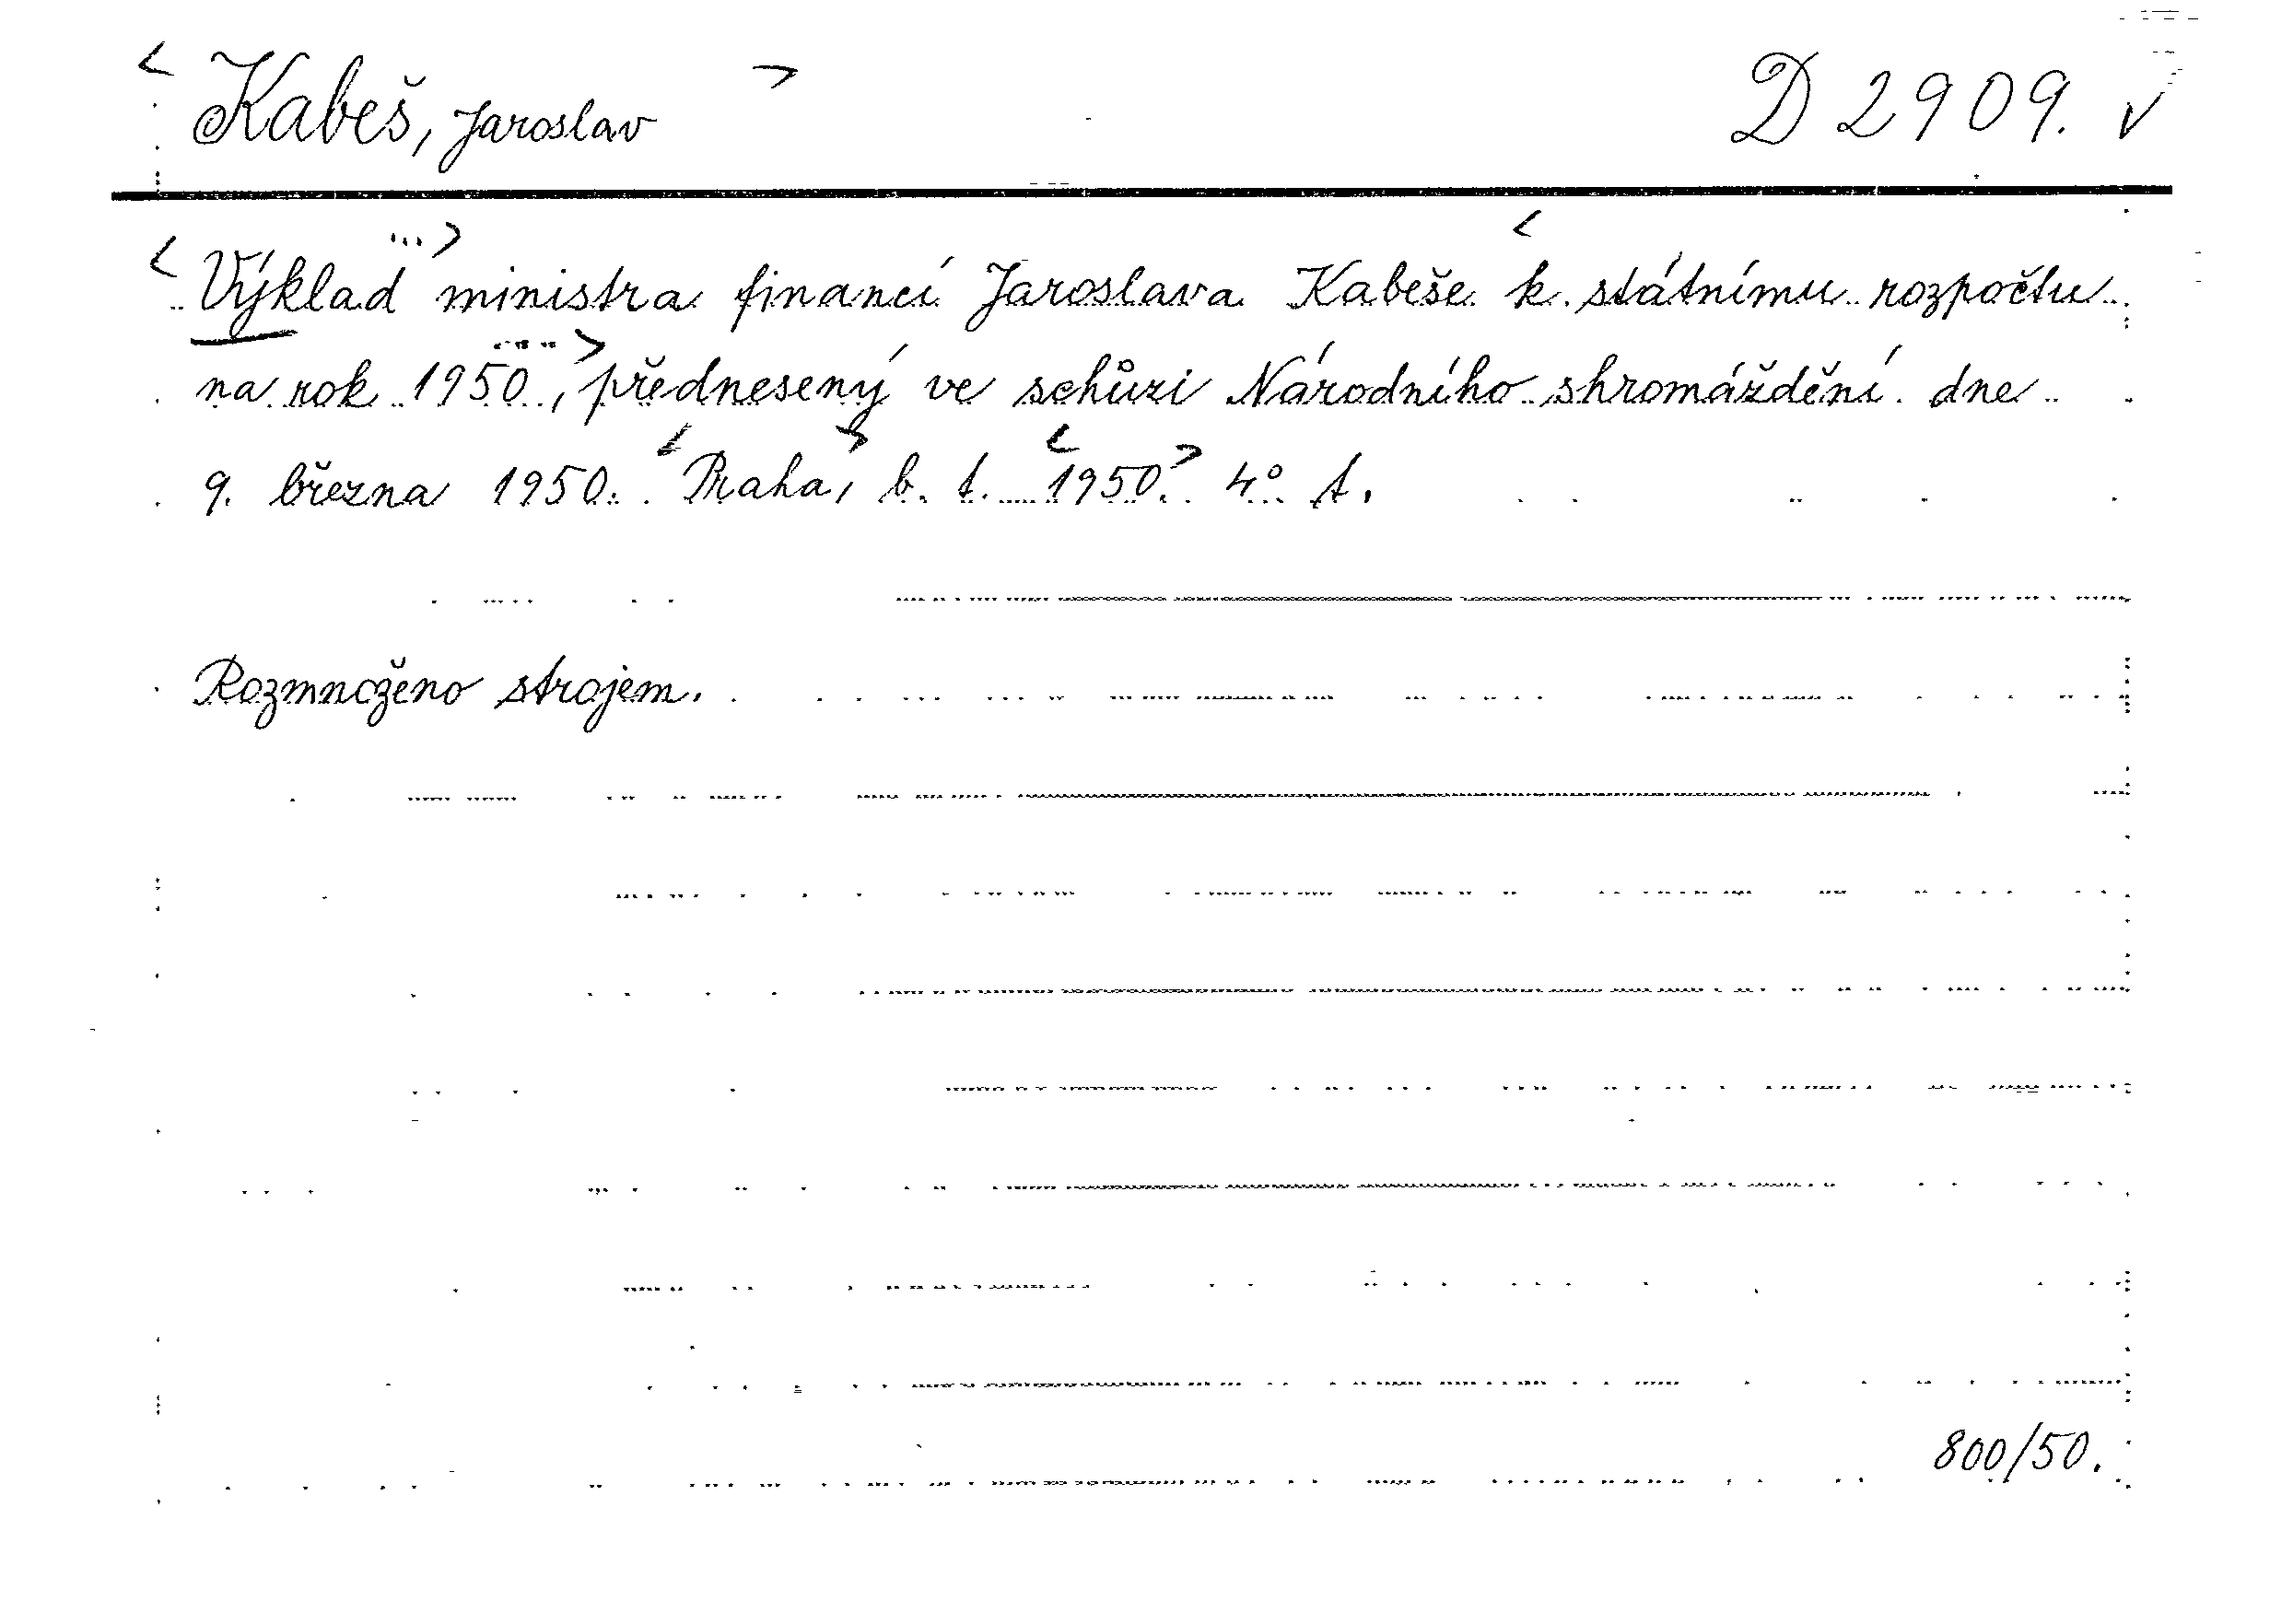 < Kabeš, Jaroslav > D 2909. v
< Výklad ...> ministra financí Jaroslava Kabeše < k státnímu rozpočtu
na rok 1950 ...>, přednesený ve schůzi Národního shromáždění dne
9. března 1950. < Praha >, b. t. < 1950. > 4° A.
Rozmnoženo strojem.
800/50.